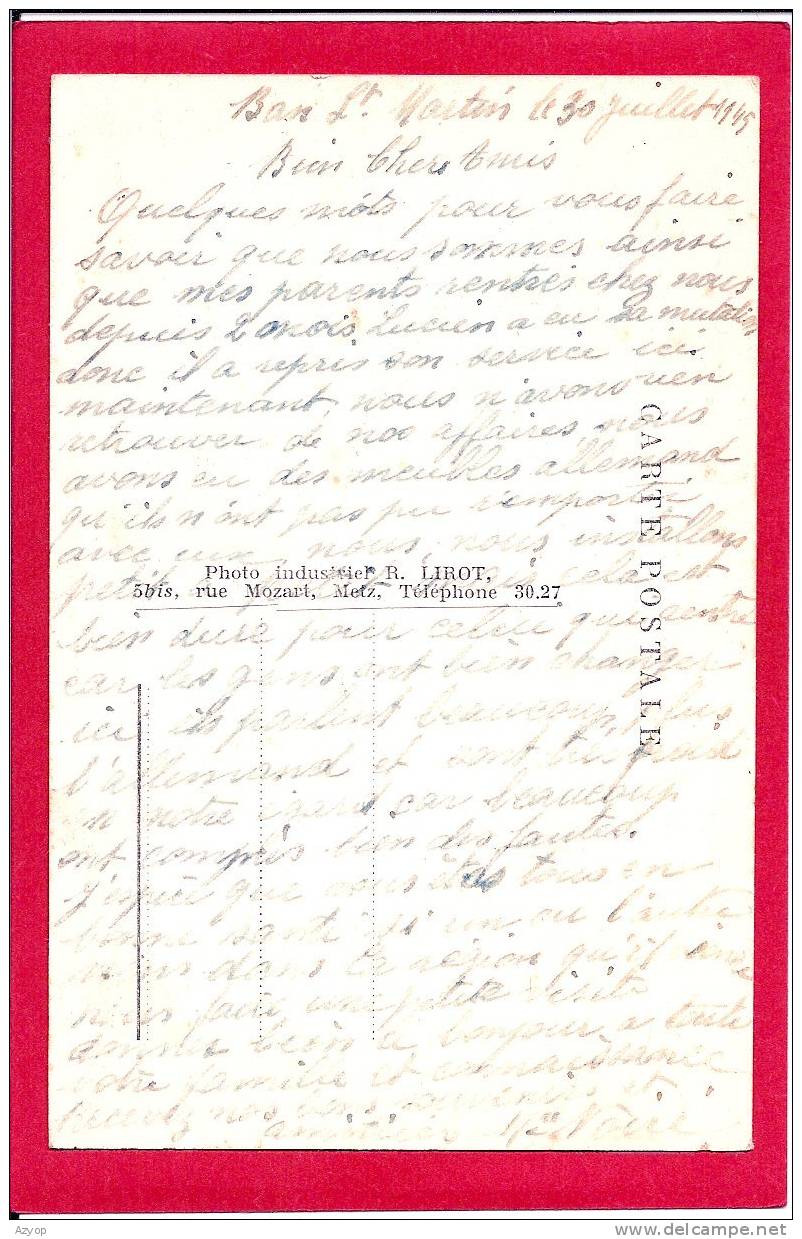 Ban St. Martin le 30 Juillet 1945
Bien Chers Amis
Quelques mots pour vous faire
savoir que nous sommes ainsi
que mes parents rentrés chez nous
depuis 2 mois, Lucien a eu sa mutation
donc il a repris son service ici
maintenant, nous n'avons rien
retrouver de nos affaires, nous
avons eu des meubles allemand
qu'ils n'ont pas pu emporté
avec eux, nous nous installons
petit à petit mais cela est
Photo industriel R. LIROT,
5bis, rue Mozart, Metz, Téléphone 30.27
bien dure pour celui qui rentre
car les gens ont bien changer
ici ils parlent beaucoup plus
l'allemand et sont très froid
à notre égard car beaucoup
ont compris bien des fautes.
J'espère que vous êtes tous en
bonne santé si un ou l'autre
viens dans la région qu'il vienne
nous faire une petite visite
donner bien le bonjour a toute
votre famille et connaissance
recevez nos bons souvenirs et
amitiées
CARTE POSTALE
Azyop
http://www.delcampe.net